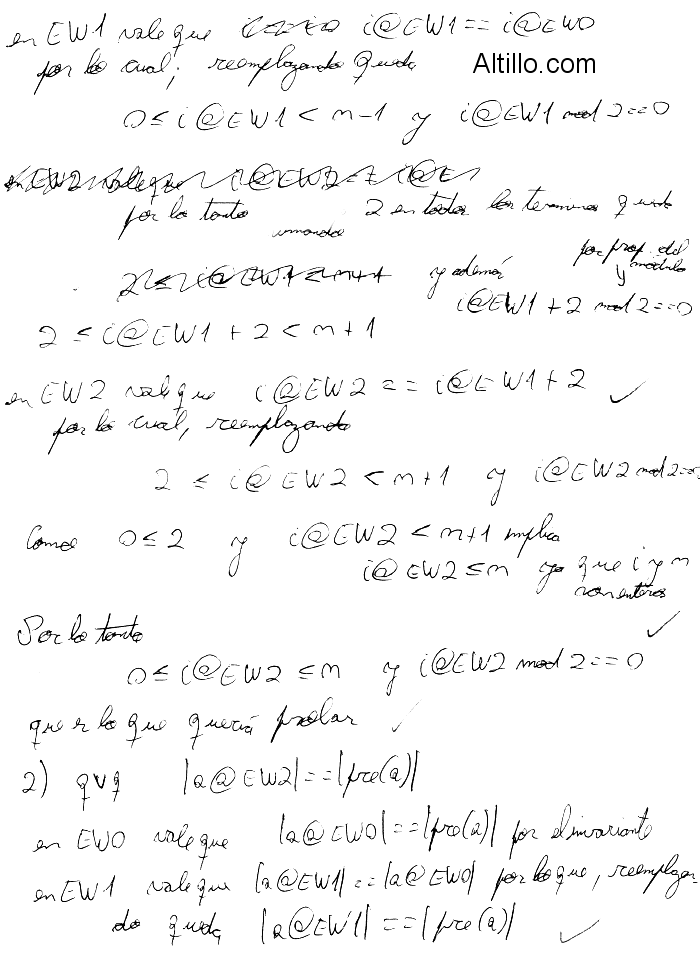 en EW1 vale que i@EW1 == i@EW0
Altillo.com
por lo cual, reemplazando queda
0 ≤ i@EW1 < n-1 y i@EW1 mod 2 == 0
por lo tanto sumando 2 en todos los terminos queda
y además por prop. del módulo
y
i@EW1 + 2 mod 2 == 0
2 ≤ i@EW1 + 2 < n+1
en EW2 vale que i@EW2 == i@EW1 + 2 ✓
por lo cual, reemplazando
2 ≤ i@EW2 < n+1 y i@EW2 mod 2 == 0
Como 0 ≤ 2 y i@EW2 < n+1 implica
i@EW2 ≤ n ya que i y n
son enteros
Por lo tanto ✓
0 ≤ i@EW2 ≤ n y i@EW2 mod 2 == 0
que es lo que quería probar ✓
2) qvq |a@EW2| == |pre(a)|
en EW0 vale que |a@EW0| == |pre(a)| por el invariante
en EW1 vale que |a@EW1| == |a@EW0| por lo que, reemplazan
do queda |a@EW1| == |pre(a)| ✓